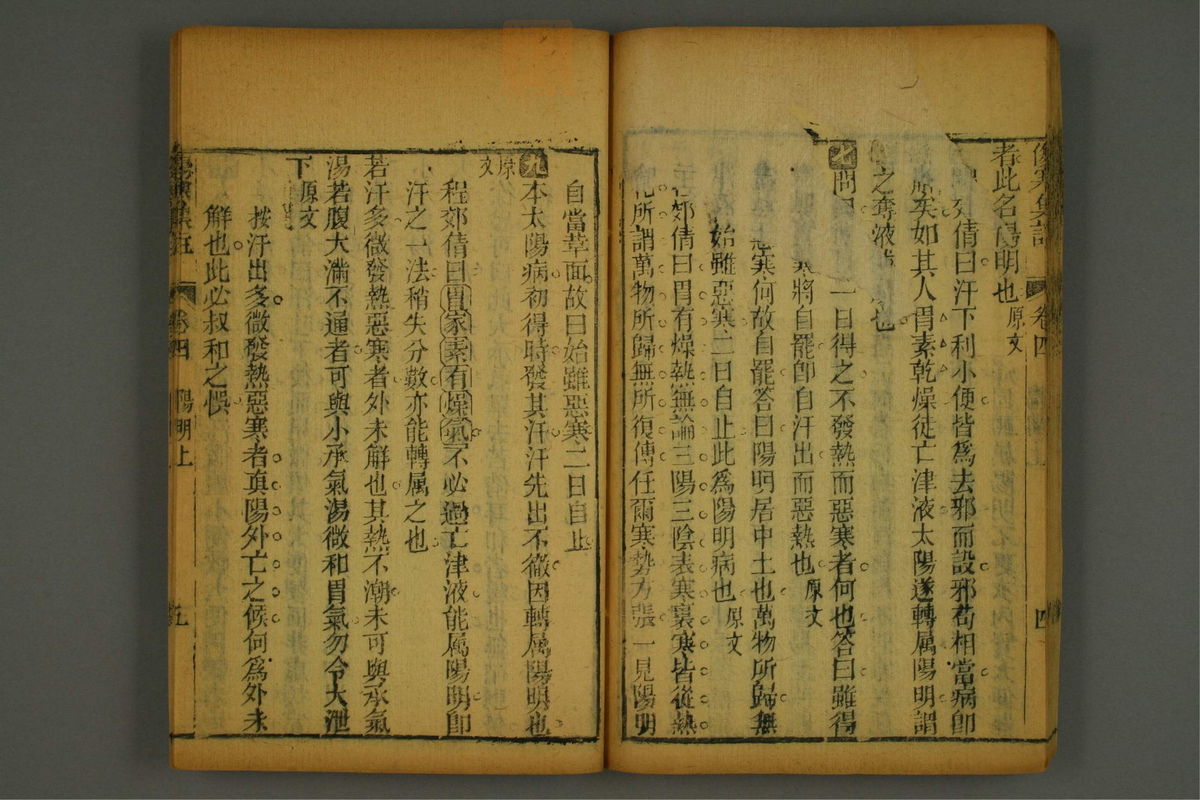 傷寒集註 卷四 四
者此名陽明也原文
郊倩曰汗下利小便皆爲去邪而設邪苟相當病卽
矣如其人胃素乾燥徒亡津液太陽遂轉属陽明謂
之奪液也
問一日得之不發熱而惡寒者何也答曰雖得
寒將自罷卽自汗出而惡熱也原文
惡寒何故自罷答曰陽明居中土也萬物所歸無
始雖惡寒二日自止此爲陽明病也原文
郊倩曰胃有燥熱無論三陽三陰表寒裏寒皆從熱
所謂萬物所歸無所復傳任爾寒勢方張一見陽明
自當革面故曰始雖惡寒二日自止
九 本太陽病初得時發其汗汗先出不徹因轉属陽明也
原文
程郊倩曰胃家素有燥氣不必過亡津液能属陽明卽
汗之一法稍失分數亦能轉属之也
若汗多微發熱惡寒者外未解也其熱不潮未可與承氣
湯若腹大滿不通者可與小承氣湯微和胃氣勿令大泄
下原文
按汗出多微發熱惡寒者眞陽外亡之候何爲外未
解也此必叔和之悞
卷四 陽明上 五